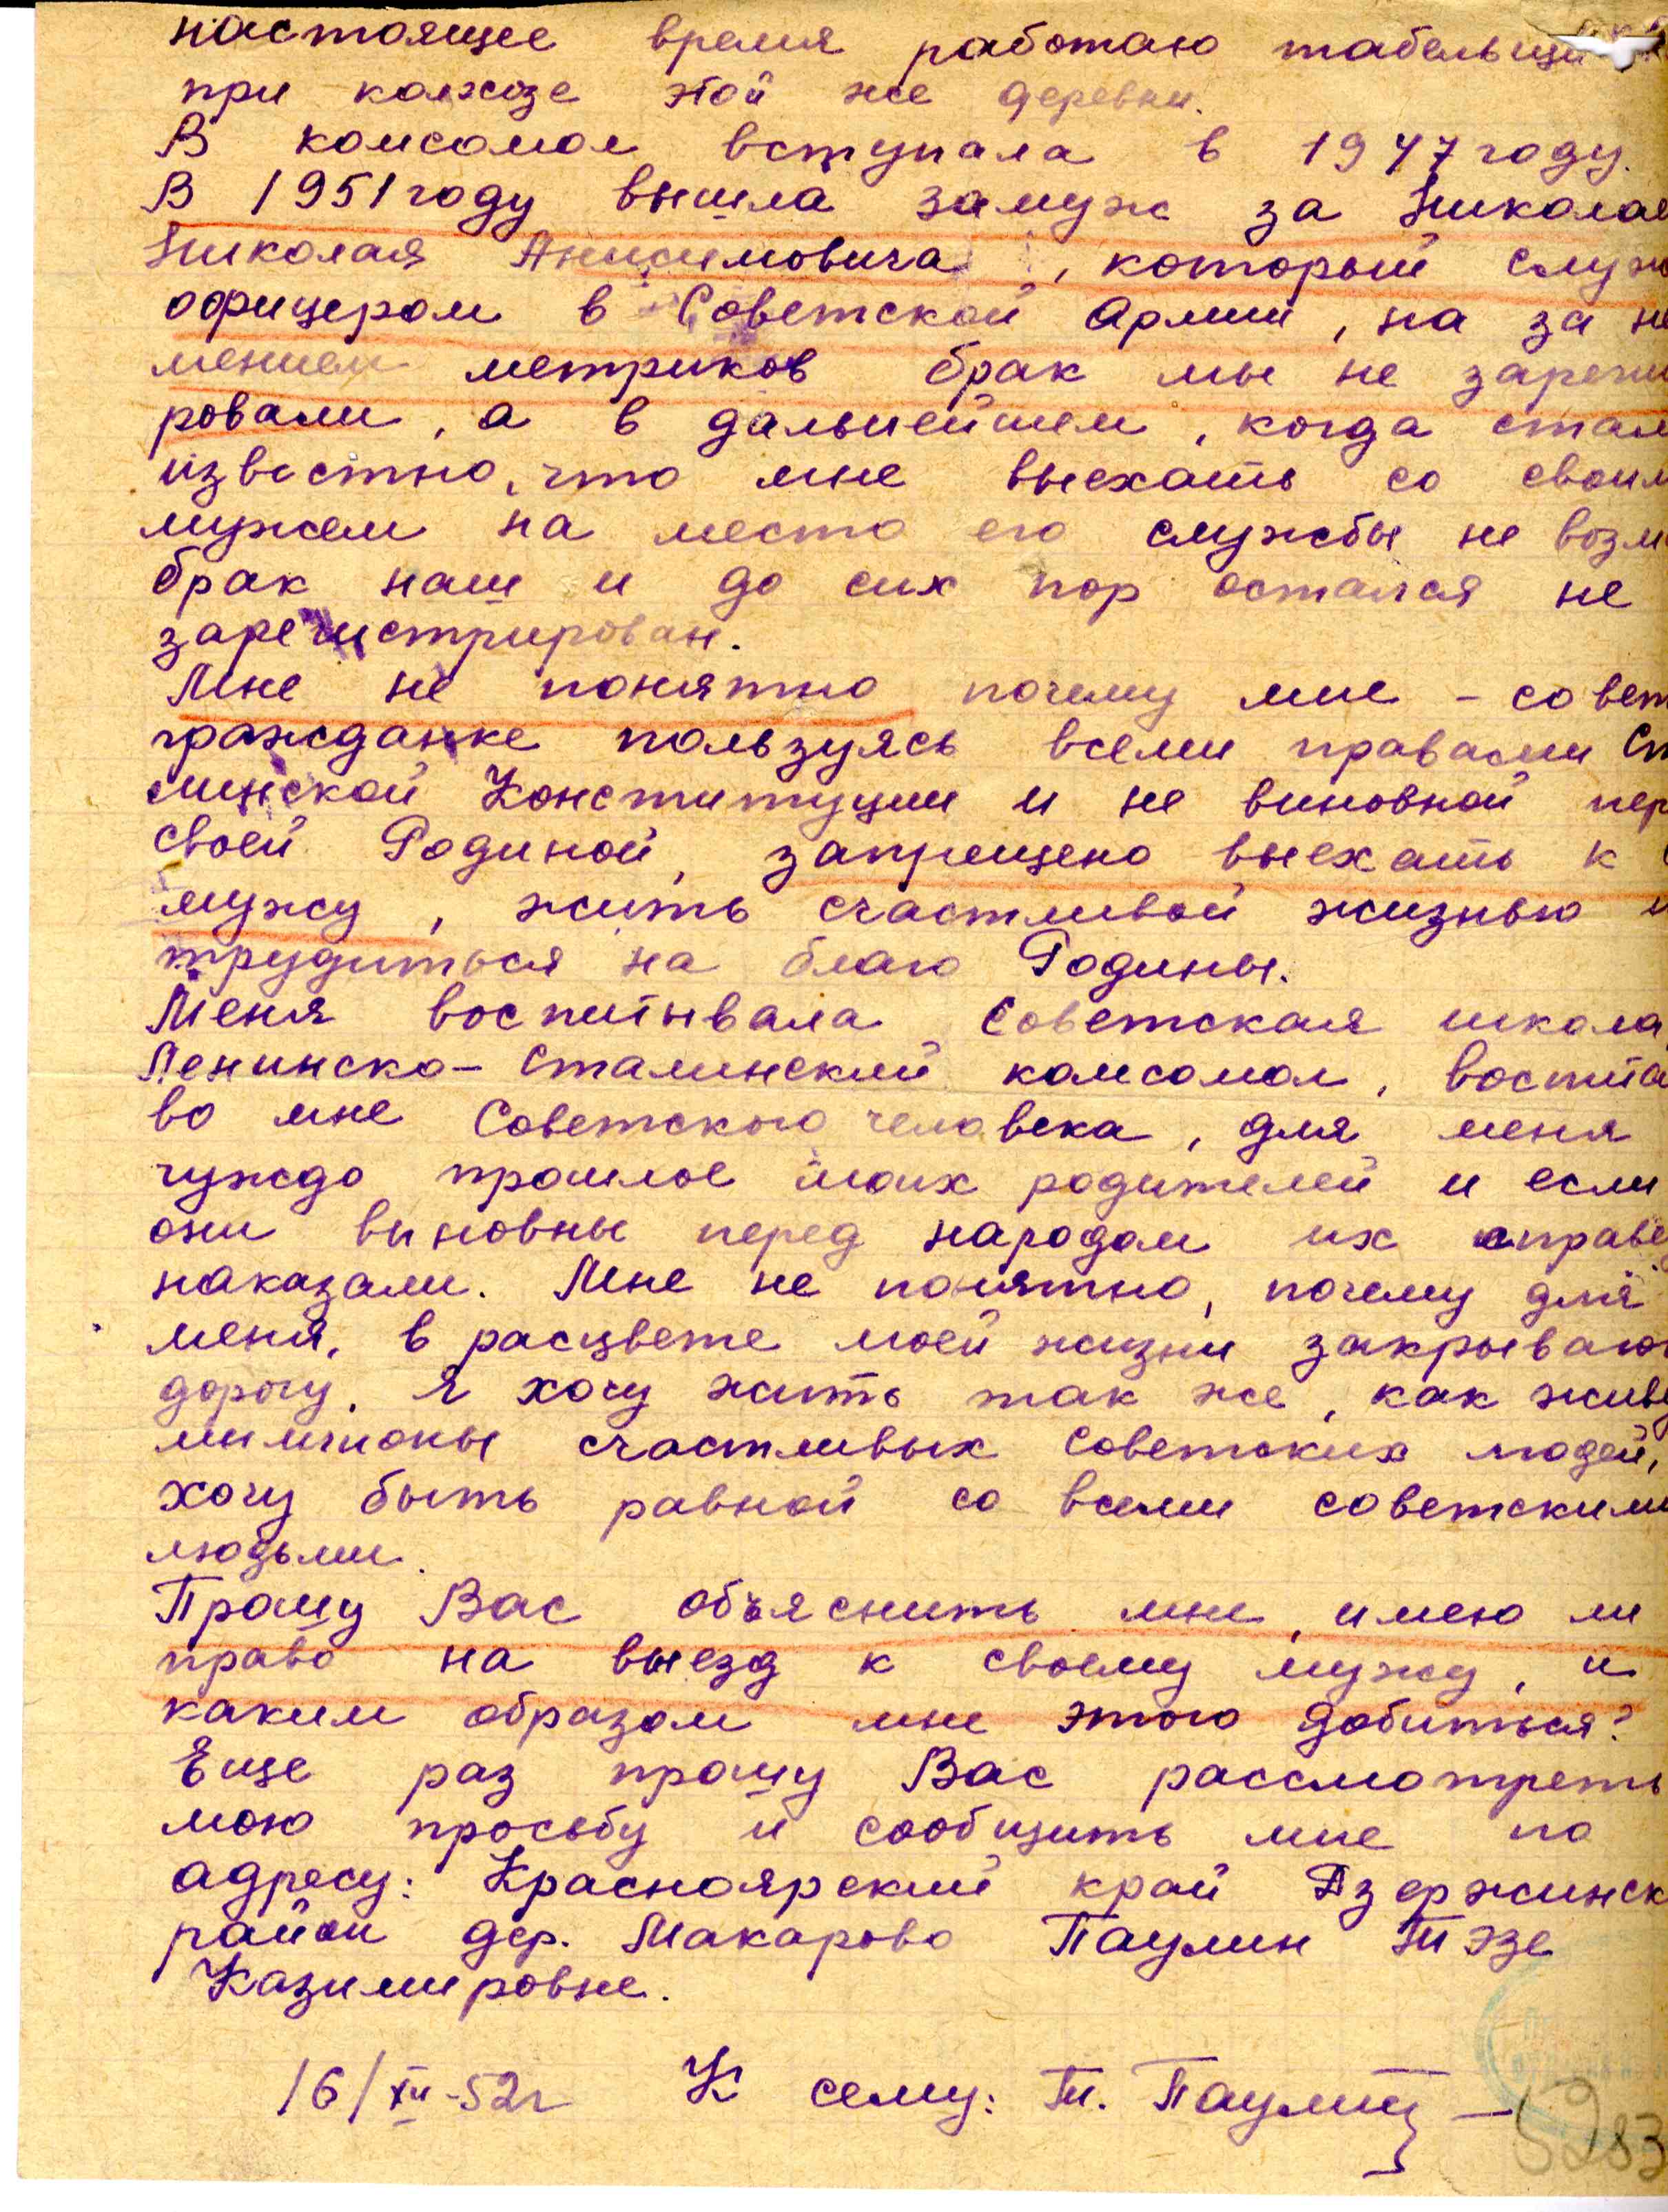 настоящее время работаю табельщи
при колхозе этой же деревни.
В комсомол вступала в 1947 году.
В 1951 году вышла замуж за Николая
Николая Анисимовича, который служ
офицером в Советской Армии, на за не
мением метриков брак мы не зареги
ровали, а в дальнейшем, когда стал
известно, что мне выехать со своим
мужем на место его службы не возм
брак наш и до сих пор остался не
зарегистрирован.
Мне не понятно почему мне - совет
гражданке пользуясь всеми правами Ст
линской Конституции и не виновной пер
своей Родиной, запрещено выехать к
мужу, жить счастливой жизнью и
трудиться на благо Родины.
Меня воспитывала Советская школа,
Ленинско-Сталинский комсомол, воспита
во мне Советского человека, для меня
чуждо прошлое моих родителей и если
они виновны перед народом их справед
наказали. Мне не понятно, почему для
меня, в расцвете моей жизни закрываю
дорогу. Я хочу жить так же, как живу
миллионы счастливых Советских людей,
хочу быть равной со всеми советскими
людьми.
Прошу Вас объяснить мне, имею ли
право на выезд к своему мужу, и
каким образом мне этого добиться?
Еще раз прошу Вас рассмотреть
мою просьбу и сообщить мне по
адресу: Красноярский край Дзержинск
район дер. Макарово Паулин Тэзе
Казимировне.
16/XII-52г К сему: Т. Паулин
83